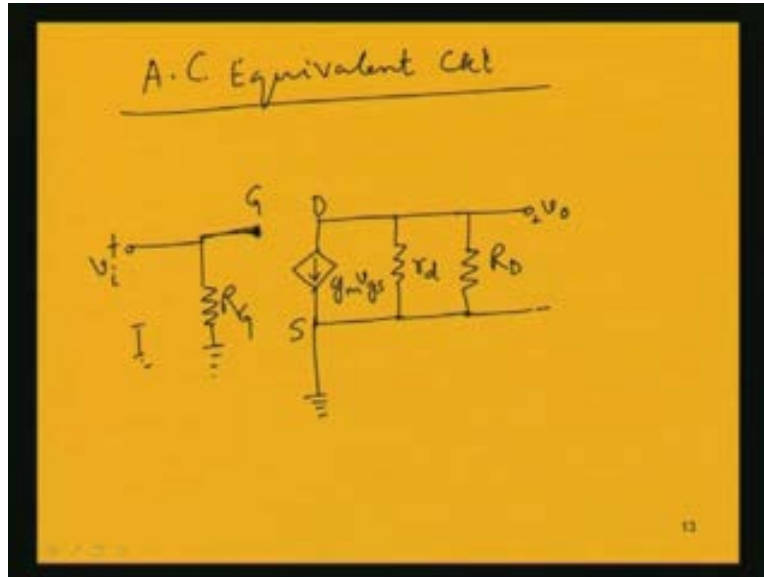 A.C. Equivalent Ckt
G D
vi + vo
gmvgs rd RD
RG
S
13